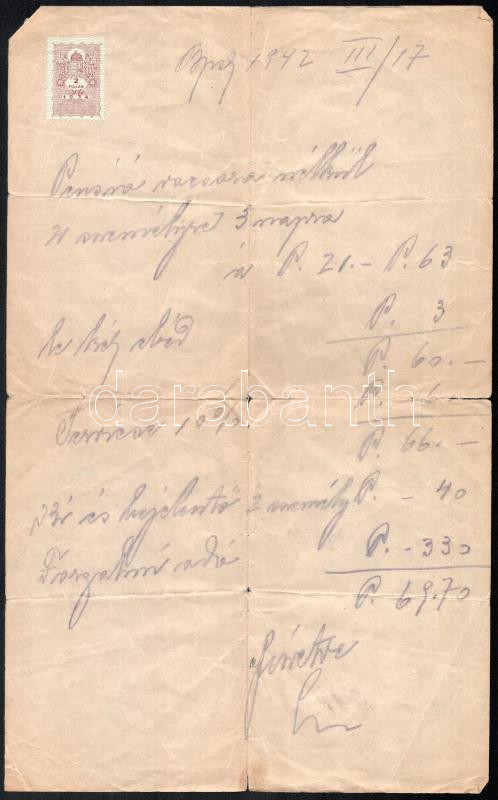 2
FILLÉR
1934
Bpest 1942 III/17
Pensió vacsora nélkül
2 személyre 3 napra
á P. 21.- P. 63
P. 3
le két ebéd P. 60.-
Service 10% P. 6.-
P. 66.-
és bejelentő 2 személy P. -40
Forgalmi adó P. -330
P. 69.70
fizetve
darabanth